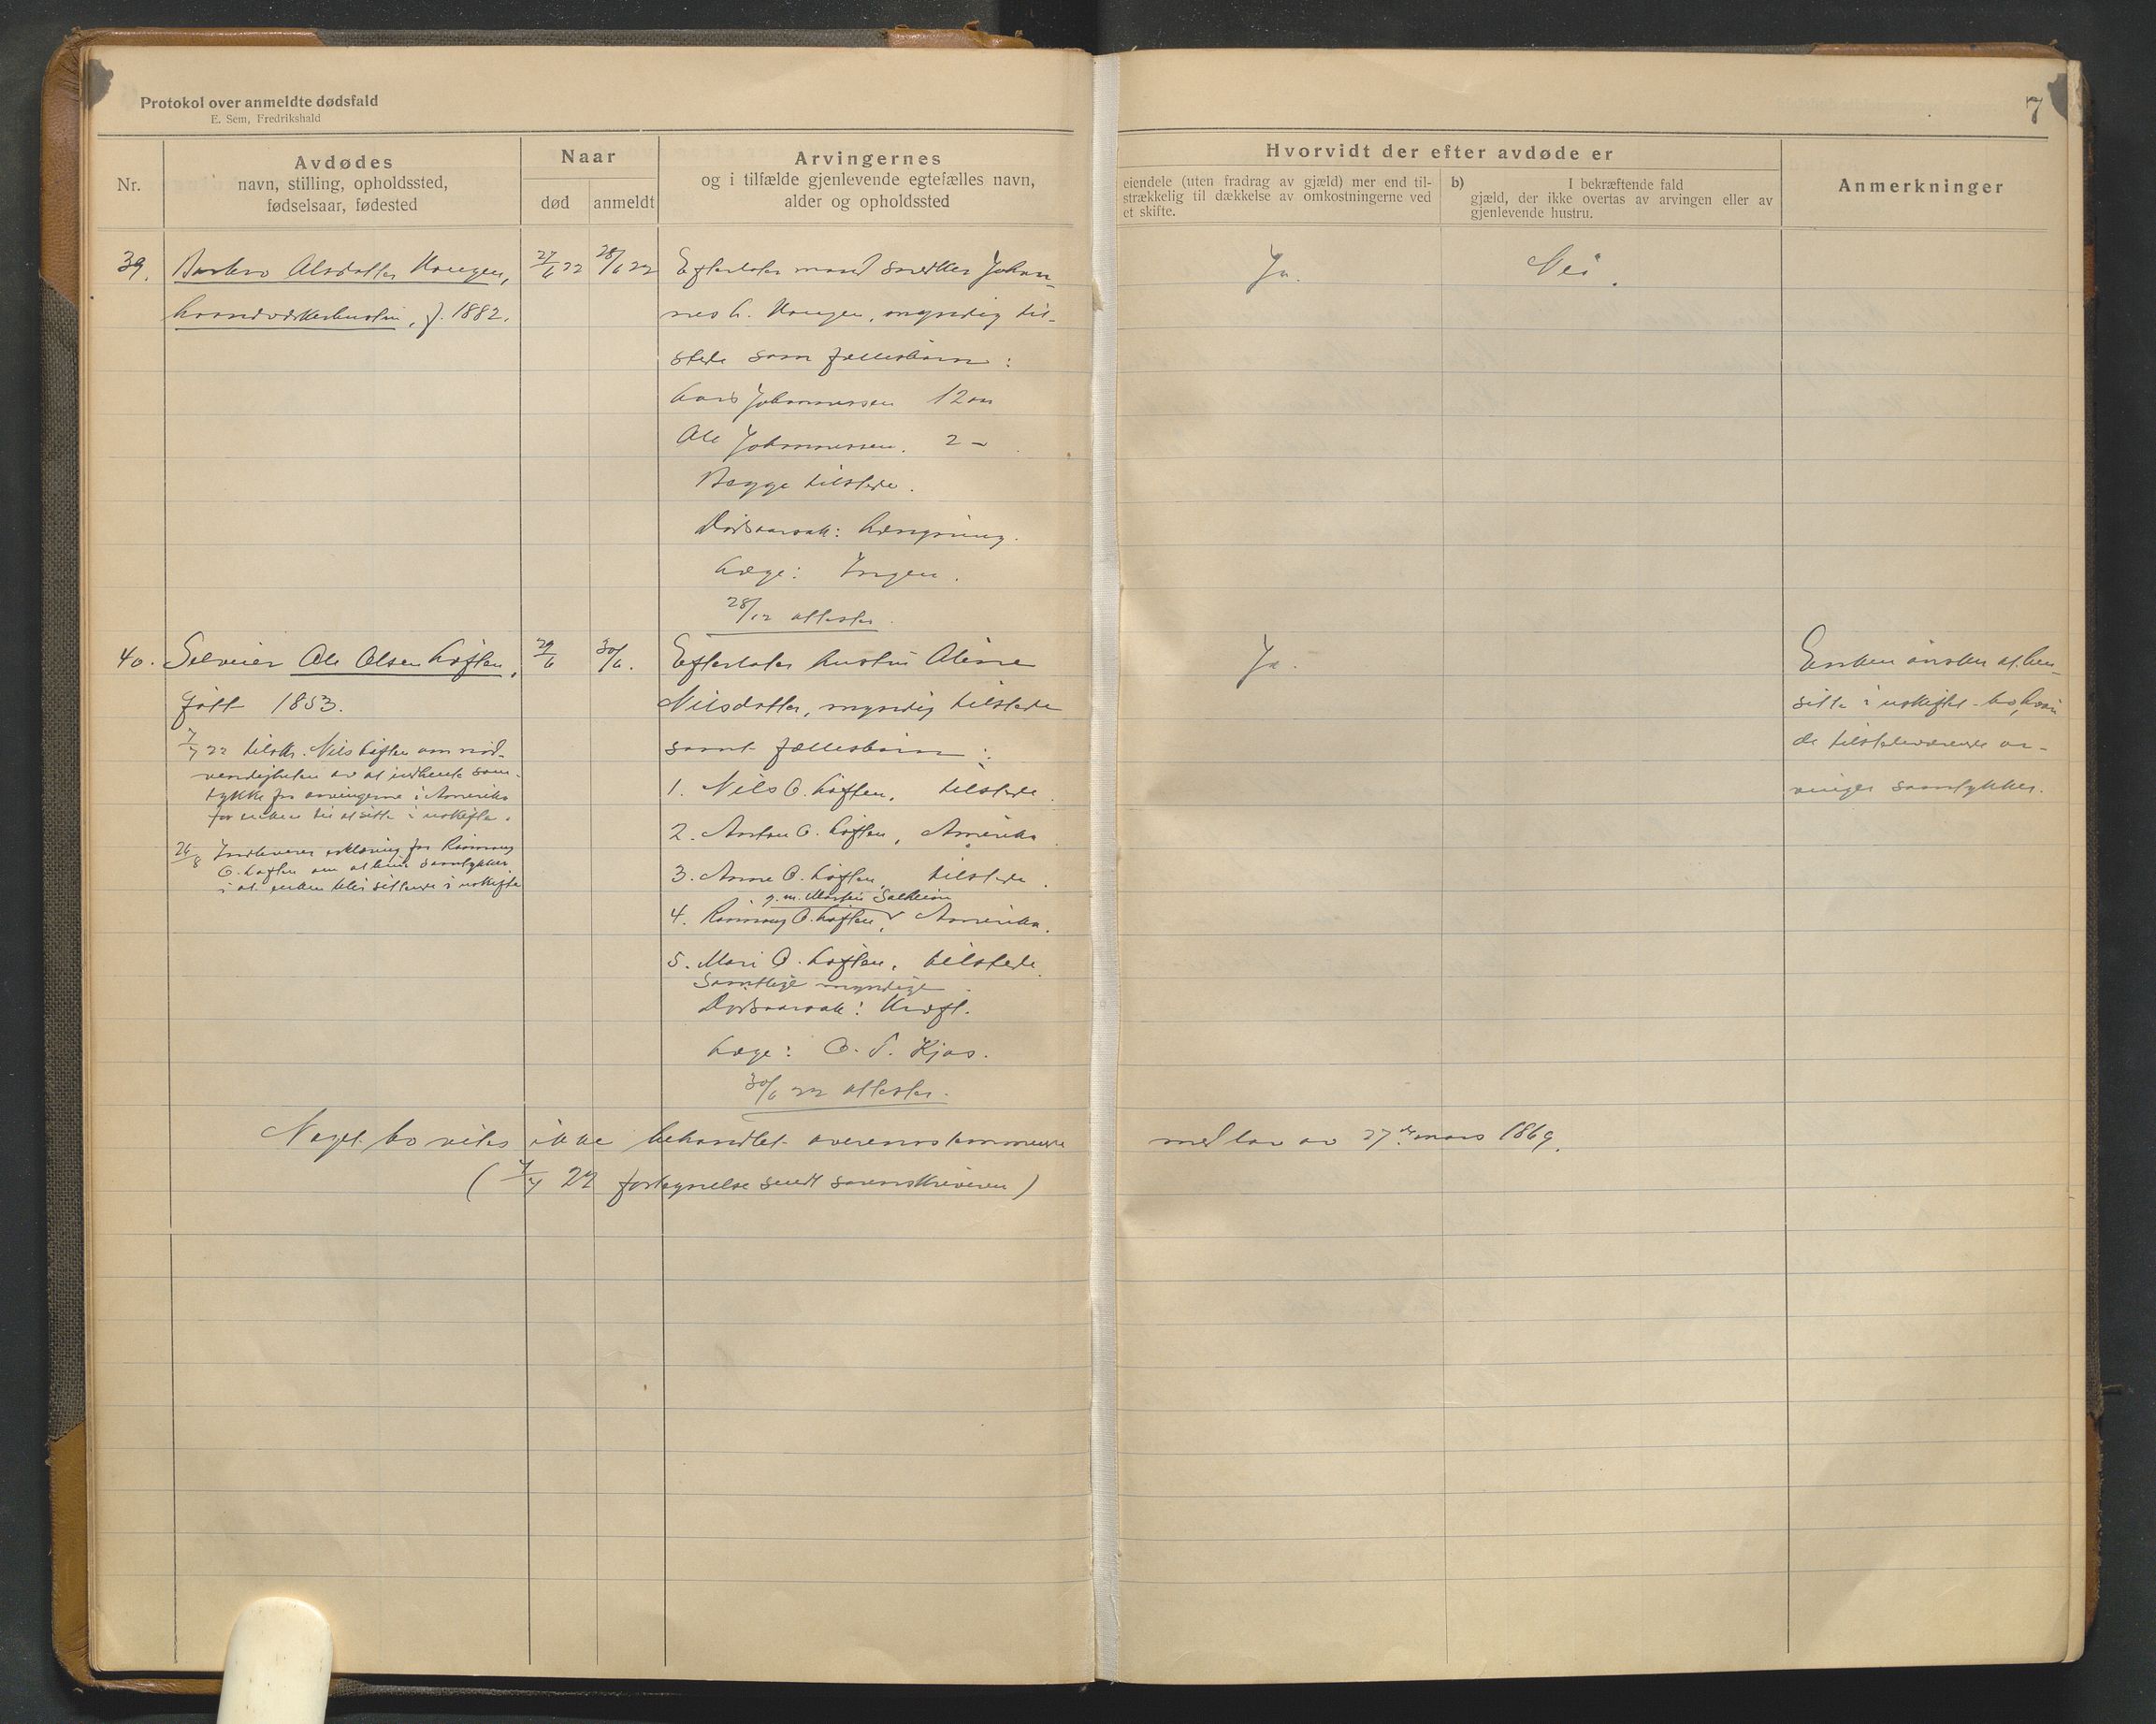 Protokol over anmeldte dødsfald
E. Sem, Fredrikshald
7
Nr.
Avdødes
navn, stilling, opholdssted,
fødselsaar, fødested
Naar
død
anmeldt
Arvingernes
og i tilfælde gjenlevende egtefælles navn,
alder og opholdssted
Hvorvidt der efter avdøde er
eiendele (uten fradrag av gjæld) mer end til-
strækkelig til dækkelse av omkostningerne ved
et skifte.
b) I bekræftende fald
gjæld, der ikke overtas av arvingen eller av
gjenlevende hustru.
Anmerkninger
39. Barbro Olsdatter Haugen,
haandverkerhustru, f. 1882.
27/6 22
28/6 22
Efterlater mand snedker Johan-
nes L. Haugen, myndig til-
stede samt fællesbarn:
Lars Johannessen 12 aar
Ole Johannessen. 2 –
Begge tilstede.
Dødsaarsak: Hængning.
Læge: Ingen.
28/12 attester.
Ja.
Nei.
40. Selveier Ole Olsen Loften,
født 1853.
7/7 22 tilsk. Nils Loften om nød-
vendigheten av at indhente sam-
tykke fra arvingerne i Amerika
for enken til at sitte i uskifte.
26/8 Indleverer erklæring fra
O. Loften om at samtykker
i at enken blir sittende i uskifte
29/6
30/6.
Efterlater hustru Oline
Nilsdatter, myndig tilstede
samt fællesbarn:
1. Nils O. Loften, tilstede.
2. Anton O. Loften, Amerika.
3. Anne O. Loften, tilstede.
g. m. Martin Solheim
4. O. Loften, Amerika.
5. Mari O. Loften, tilstede.
Samtlige myndige.
Dødsaarsak: Kræft.
Læge: O. S. Kjos.
30/6 22 attester.
Ja.
Enken ønsker at hen-
sitte i uskiftet bo, hvori
de tilstedeværende ar-
vinger samtykker.
Noget bo vites ikke behandlet overensstemmende med lov av 27de mars 1869.
(7/7 22 fortegnelse sendt sorenskriveren)